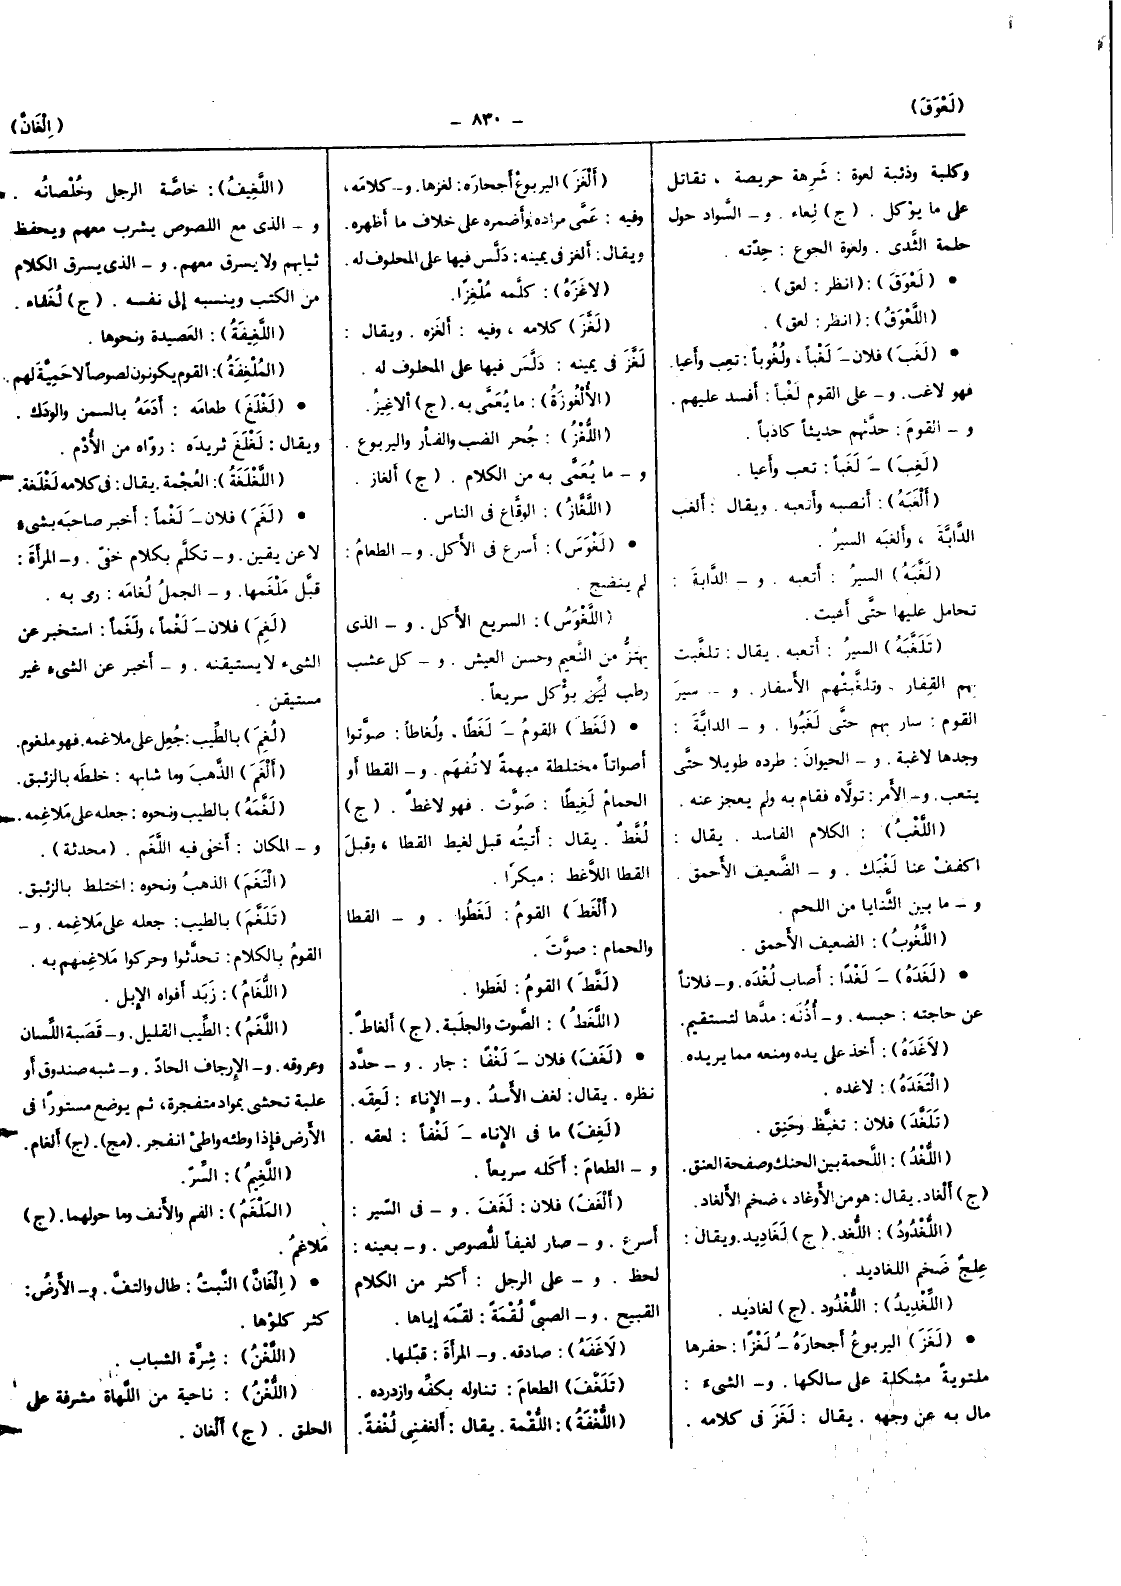 (لَعْوَقَ)
- ٨٣٠ -
(اِلْغَانَّ)
وكلبة وذئبة لعوة : شَرِهة حريصة ، تقاتل
على ما يؤكل . (ج) لِعاء . و – السَّواد حول
حلمة الثَّدى . ولعوة الجوع : حِدّته .
• (لَعْوَقَ) : (انظر : لعق) .
(اللَّعْوَقُ) : (انظر : لعق) .
• (لَغَبَ) فلان –َ لَغْباً ، ولُغُوباً : تعِب وأعيا .
فهو لاغب . و – على القوم لَغْباً : أفسد عليهم .
و – القومَ : حدَّثهم حديثاً كاذباً .
(لَغِبَ) –َ لَغَباً : تعب وأعيا .
(أَلْغَبَهُ) : أنصبه وأتعبه . ويقال : ألغب
الدَّابةَ ، وألغبَه السيرُ .
(لَغَّبَهُ) السيرُ : أتعبه . و – الدَّابةَ :
تحامل عليها حتَّى أعيت .
(تَلَغَّبَهُ) السيرُ : أتعبه . يقال : تلغَّبت
بهم القِفار . وتلغَّبتْهم الأسفار . و – سيرَ
القوم : سار بهم حتَّى لَغَبُوا . و – الدابَّةَ :
وجدها لاغبة . و – الحيوانَ : طرده طويلا حتَّى
يتعب . و – الأمرَ : تولَّاه فقام به ولم يعجز عنه .
(اللَّغْبُ) : الكلام الفاسد . يقال :
اكففْ عنا لَغْبَك . و – الضَّعيف الأحمق .
و – ما بين الثَّنايا من اللحم .
(اللَّغُوبُ) : الضعيف الأحمق .
• (لَغَدَهُ) –َ لَغْدًا : أصاب لُغْدَه . و – فلاناً
عن حاجته : حبسه . و – أُذُنَه : مدَّها لتستقيم .
(لاَغَدَهُ) : أخذ على يده ومنعه مما يريده .
(الْتَغَدَهُ) : لاغده .
(تَلَغَّدَ) فلان : تغيَّظ وحَنِق .
(اللُّغْدُ) : اللَّحمة بين الحنك وصفحة العنق .
(ج) أَلْغاد . يقال : هو من الأَوغاد ، ضخم الأَلغاد .
(اللُّغْدُودُ) : اللُّغد . (ج) لَغَادِيد . ويقال :
عِلجٌ ضَخم اللغاديد .
(اللِّغْدِيدُ) : اللُّغْدُود . (ج) لغاديد .
• (لَغَزَ) اليربوعُ أجحارَهُ –ُ لَغْزًا : حفرها
ملتويةً مشكلة على سالكها . و – الشىءَ :
مال به عن وجهه . يقال : لَغَزَ فى كلامه .
(أَلْغَزَ) اليربوعُ أجحارَه : لغزها . و – كلامَه ،
وفيه : عَمَّى مراده وأضمره على خلاف ما أظهره .
ويقال : ألغز فى يمينه : دَلَّس فيها على المحلوف له .
(لاغَزَهُ) : كلَّمه مُلْغِزًا .
(لَغَّزَ) كلامه ، وفيه : ألغزه . ويقال :
لَغَّزَ فى يمينه : دَلَّسَ فيها على المحلوف له .
(الأُلْغُوزَةُ) : ما يُعَمَّى به . (ج) ألاغيزُ .
(اللُّغْزُ) : جُحر الضب والفأر واليربوع .
و – ما يُعَمَّى به من الكلام . (ج) ألغاز .
(اللَّغَّازُ) : الوقَّاع فى الناس .
• (لَغْوَسَ) : أسرع فى الأكل . و – الطعامُ :
لم ينضج .
(اللَّغْوَسُ) : السريع الأكل . و – الذى
يهتزُّ من النَّعيم وحسن العيش . و – كل عشب
رطب ليِّن يؤْكل سريعاً .
• (لَغَطَ) القومُ –َ لَغَطًا ، ولُغاطاً : صوّتوا
أصواتاً مختلطة مبهمةً لا تُفهَم . و – القطا أو
الحمامُ لَغِيطًا : صَوَّت . فهو لاغطٌ . (ج)
لُغَّطٌ . يقال : أتيتُه قبل لغيط القطا ، وقبلَ
القطا اللاَّغط : مبكرًا .
(أَلْغَطَ) القومُ : لَغَطُوا . و – القطا
والحمام : صوَّتَ .
(لَغَّطَ) القومُ : لغَطوا .
(اللَّغَطُ) : الصَّوت والجلَبة . (ج) ألغاطٌ .
• (لَغَفَ) فلان –َ لَغْفًا : جار . و – حدَّد
نظره . يقال : لغف الأسدُ . و – الإناءَ : لَعِقَه .
(لَغِفَ) ما فى الإناء –َ لَغْفاً : لعقه .
و – الطعامَ : أكَله سريعاً .
(أَلْغَفَ) فلان : لَغَفَ . و – فى السَّير :
أسرع . و – صار لغيفاً للُّصوص . و – بعينه :
لحظ . و – على الرجل : أكثر من الكلام
القبيح . و – الصبىَّ لُقْمَةً : لقمَه إياها .
(لاَغَفَهُ) : صادقه . و – المرأةَ : قبّلها .
(تَلَغَّفَ) الطعامَ : تناوله بكفّه وازدرده .
(اللُّغْفَةُ) : اللُّقْمة . يقال : ألغفنى لُغْفةً .
(اللَّغِيفُ) : خاصَّة الرجل وخُلْصانُه .
و – الذى مع اللصوص يشرب معهم ويحفظ
ثيابهم ولا يسرق معهم . و – الذى يسرق الكلام
من الكتب وينسبه إلى نفسه . (ج) لُغَفاء .
(اللَّغِيفَةُ) : العَصيدة ونحوها .
(المُلْغِفَةُ) : القوم يكونون لصوصاً لا حَمِيَّة لهم .
• (لَغْلَغَ) طعامَه : أَدَمَهُ بالسمن والودَك .
ويقال : لَغْلَغَ ثريدَه : روّاه من الأُدْم .
(اللَّغْلَغَةُ) : العُجْمة . يقال : فى كلامه لَغْلَغة .
• (لَغَمَ) فلان –َ لَغْماً : أخبر صاحبَه بشىء
لا عن يقين . و – تكلَّم بكلام خفىّ . و – المرأةَ :
قبَّل مَلْغَمها . و – الجملُ لُغامَه : رمى به .
(لَغِمَ) فلان –َ لَغْماً ، ولَغَماً : استخبر عن
الشىء لا يستيقنه . و – أخبر عن الشىء غير
مستيقن .
(لُغِمَ) بالطِّيب : جُعِل على ملاغمه . فهو ملغوم .
(أَلْغَمَ) الذَّهبَ وما شابهه : خلطَه بالزئبق .
(لَغَّمَهُ) بالطيب ونحوه : جعله على مَلاغِمه .
و – المكان : أخفى فيه اللَّغَم . (محدثة) .
(الْتَغَمَ) الذهبُ ونحوه : اختلط بالزئبق .
(تَلَغَّمَ) بالطيب : جعله على مَلاغِمه . و –
القومُ بالكلام : تحدَّثوا وحركوا مَلاغِمهم به .
(اللُّغَامُ) : زَبَد أفواه الإبل .
(اللَّغَمُ) : الطِّيب القليل . و – قَصَبة اللَّسان
وعروقه . و – الإرجاف الحادّ . و – شبه صندوق أو
علبة تحشى بمواد متفجرة ، ثم يوضع مستورًا فى
الأرض فإذا وطئه واطئ انفجر . (مج) . (ج) ألغام .
(اللَّغِيمُ) : السِّرّ .
(المَلْغَمُ) : الفم والأنف وما حولهما . (ج)
مَلاغمُ .
• (اِلْغَانَّ) النَّبتُ : طال والتفَّ . و – الأَرضُ :
كثر كلؤها .
(اللَّغْنُ) : شِرَّة الشباب .
(اللُّغْنُ) : ناحية من اللَّهاة مشرفة على
الحلق . (ج) أَلْغان .